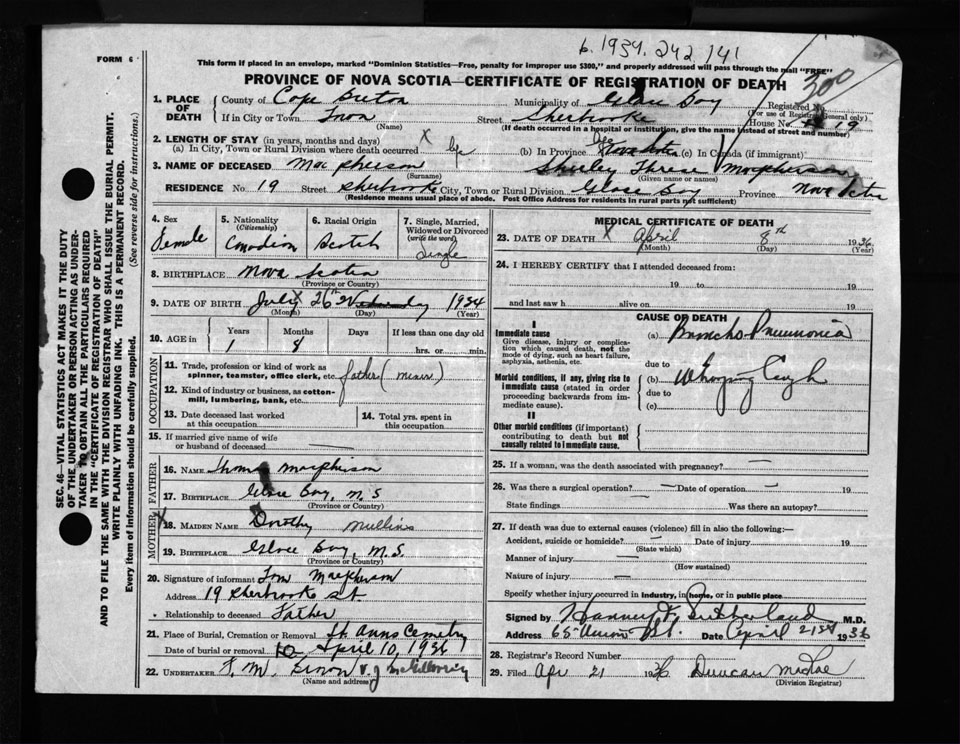 b. 1934. 242 141
FORM 6
This form if placed in an envelope, marked "Dominion Statistics—Free, penalty for improper use $300," and properly addressed will pass through the mail "FREE"
300
PROVINCE OF NOVA SCOTIA—CERTIFICATE OF REGISTRATION OF DEATH
1. PLACE OF DEATH
County of Cape Breton Municipality of Glace Bay Registered No.
(For use of Registrar General only)
If in City or Town Town Street Sherbrooke House No. 19
(Name) (If death occurred in a hospital or institution, give the name instead of street and number)
2. LENGTH OF STAY (in years, months and days)
(a) In City, Town or Rural Division where death occurred life (b) In Province Nova Scotia (c) In Canada (if immigrant)
3. NAME OF DECEASED Macpherson Shirley Therese Macpherson
(Surname) (Given name or names)
RESIDENCE No. 19 Street Sherbrooke City, Town or Rural Division Glace Bay Province Nova Scotia
(Residence means usual place of abode. Post Office Address for residents in rural parts not sufficient)
4. Sex Female
5. Nationality (Citizenship) Canadian
6. Racial Origin Scotch
7. Single, Married, Widowed or Divorced (write the word) Single
8. BIRTHPLACE Nova Scotia
(Province or Country)
9. DATE OF BIRTH July 26th 1934
(Month) (Day) (Year)
10. AGE in Years Months Days If less than one day old
1 8 hrs. or min.
OCCUPATION
11. Trade, profession or kind of work as spinner, teamster, office clerk, etc. father (miner)
12. Kind of industry or business, as cotton-mill, lumbering, bank, etc.
13. Date deceased last worked at this occupation
14. Total yrs. spent in this occupation
15. If married give name of wife or husband of deceased
FATHER
16. NAME Thomas Macpherson
17. BIRTHPLACE Glace Bay, N.S
(Province or Country)
MOTHER
18. MAIDEN NAME Dorothy Mullins
19. BIRTHPLACE Glace Bay, N.S.
(Province or Country)
20. Signature of informant Tom Macpherson
Address 19 Sherbrooke St.
Relationship to deceased Father
21. Place of Burial, Cremation or Removal St Anns Cemetry
Date of burial or removal 10 April 10, 1936
22. UNDERTAKER
(Name and address)
MEDICAL CERTIFICATE OF DEATH
23. DATE OF DEATH April 8th 1936
(Month) (Day) (Year)
24. I HEREBY CERTIFY that I attended deceased from:
19 to 19
and last saw h alive on 19
CAUSE OF DEATH
I
Immediate cause
Give disease, injury or complication which caused death, not the mode of dying, such as heart failure, asphyxia, asthenia, etc.
(a) Broncho Pneumonia
due to
Morbid conditions, if any, giving rise to immediate cause (stated in order proceeding backwards from immediate cause).
(b) Whooping Cough
due to
(c)
II
Other morbid conditions (if important) contributing to death but not causally related to immediate cause.
25. If a woman, was the death associated with pregnancy?
26. Was there a surgical operation? Date of operation 19
State findings Was there an autopsy?
27. If death was due to external causes (violence) fill in also the following:—
Accident, suicide or homicide? Date of injury 19
(State which)
Manner of injury
(How sustained)
Nature of injury
Specify whether injury occurred in industry, in home, or in public place
Signed by Sutherland M.D.
Address 65 St. Date April 21st 1936
28. Registrar's Record Number
29. Filed Apr 21 1936 Duncan MacRae
(Division Registrar)
SEC. 46—VITAL STATISTICS ACT MAKES IT THE DUTY
OF THE UNDERTAKER OR PERSON ACTING AS UNDER-
TAKER TO OBTAIN ALL THE PARTICULARS REQUIRED
IN THE "CERTIFICATE OF REGISTRATION OF DEATH"
AND TO FILE THE SAME WITH THE DIVISION REGISTRAR WHO SHALL ISSUE THE BURIAL PERMIT.
WRITE PLAINLY WITH UNFADING INK. THIS IS A PERMANENT RECORD.
Every item of information should be carefully supplied. (See reverse side for instructions.)